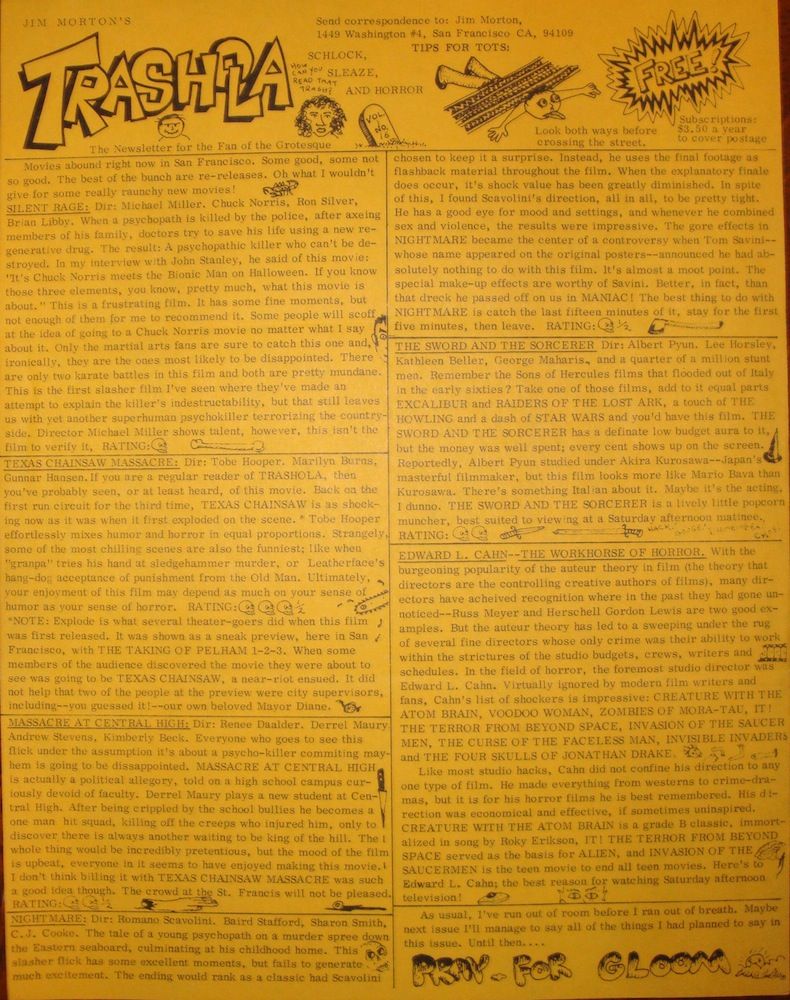 JIM MORTON'S
TRASHOLA
SCHLOCK,
SLEAZE,
AND HORROR
HOW CAN YOU READ THAT TRASH?
VOL. NO. 16
The Newsletter for the Fan of the Grotesque
Send correspondence to: Jim Morton,
1449 Washington #4, San Francisco CA, 94109
TIPS FOR TOTS:
Look both ways before
crossing the street.
FREE!
Subscriptions:
$3.50 a year
to cover postage
Movies abound right now in San Francisco. Some good, some not
so good. The best of the bunch are re-releases. Oh what I wouldn't
give for some really raunchy new movies!
SILENT RAGE: Dir: Michael Miller. Chuck Norris, Ron Silver,
Brian Libby. When a psychopath is killed by the police, after axeing
members of his family, doctors try to save his life using a new re-
generative drug. The result: A psychopathic killer who can't be de-
stroyed. In my interview with John Stanley, he said of this movie:
"It's Chuck Norris meets the Bionic Man on Halloween. If you know
those three elements, you know, pretty much, what this movie is
about." This is a frustrating film. It has some fine moments, but
not enough of them for me to recommend it. Some people will scoff
at the idea of going to a Chuck Norris movie no matter what I say
about it. Only the martial arts fans are sure to catch this one and,
ironically, they are the ones most likely to be disappointed. There
are only two karate battles in this film and both are pretty mundane.
This is the first slasher film I've seen where they've made an
attempt to explain the killer's indestructability, but that still leaves
us with yet another superhuman psychokiller terrorizing the country-
side. Director Michael Miller shows talent, however, this isn't the
film to verify it. RATING:
TEXAS CHAINSAW MASSACRE: Dir: Tobe Hooper. Marilyn Burns,
Gunnar Hansen. If you are a regular reader of TRASHOLA, then
you've probably seen, or at least heard, of this movie. Back on the
first run circuit for the third time, TEXAS CHAINSAW is as shock-
ing now as it was when it first exploded on the scene. * Tobe Hooper
effortlessly mixes humor and horror in equal proportions. Strangely,
some of the most chilling scenes are also the funniest; like when
"granpa" tries his hand at sledgehammer murder, or Leatherface's
hang-dog acceptance of punishment from the Old Man. Ultimately,
your enjoyment of this film may depend as much on your sense of
humor as your sense of horror. RATING: ½
*NOTE: Explode is what several theater-goers did when this film
was first released. It was shown as a sneak preview, here in San
Francisco, with THE TAKING OF PELHAM 1-2-3. When some
members of the audience discovered the movie they were about to
see was going to be TEXAS CHAINSAW, a near-riot ensued. It did
not help that two of the people at the preview were city supervisors,
including--you guessed it!--our own beloved Mayor Diane.
MASSACRE AT CENTRAL HIGH: Dir: Renee Daalder. Derrel Maury
Andrew Stevens, Kimberly Beck. Everyone who goes to see this
flick under the assumption it's about a psycho-killer commiting may-
hem is going to be dissappointed. MASSACRE AT CENTRAL HIGH
is actually a political allegory, told on a high school campus cur-
iously devoid of faculty. Derrel Maury plays a new student at Cen-
tral High. After being crippled by the school bullies he becomes a
one man hit squad, killing off the creeps who injured him, only to
discover there is always another waiting to be king of the hill. The
whole thing would be incredibly pretentious, but the mood of the film
is upbeat, everyone in it seems to have enjoyed making this movie.
I don't think billing it with TEXAS CHAINSAW MASSACRE was such
a good idea though. The crowd at the St. Francis will not be pleased.
RATING: ½
NIGHTMARE: Dir: Romano Scavolini. Baird Stafford, Sharon Smith,
C.J. Cooke. The tale of a young psychopath on a murder spree down
the Eastern seaboard, culminating at his childhood home. This
slasher flick has some excellent moments, but fails to generate
much excitement. The ending would rank as a classic had Scavolini
chosen to keep it a surprise. Instead, he uses the final footage as
flashback material throughout the film. When the explanatory finale
does occur, it's shock value has been greatly diminished. In spite
of this, I found Scavolini's direction, all in all, to be pretty tight.
He has a good eye for mood and settings, and whenever he combined
sex and violence, the results were impressive. The gore effects in
NIGHTMARE became the center of a controversy when Tom Savini--
whose name appeared on the original posters--announced he had ab-
solutely nothing to do with this film. It's almost a moot point. The
special make-up effects are worthy of Savini. Better, in fact, than
that dreck he passed off on us in MANIAC! The best thing to do with
NIGHTMARE is catch the last fifteen minutes of it, stay for the first
five minutes, then leave. RATING: ½
THE SWORD AND THE SORCERER Dir: Albert Pyun. Lee Horsley,
Kathleen Beller, George Maharis, and a quarter of a million stunt
men. Remember the Sons of Hercules films that flooded out of Italy
in the early sixties? Take one of those films, add to it equal parts
EXCALIBUR and RAIDERS OF THE LOST ARK, a touch of THE
HOWLING and a dash of STAR WARS and you'd have this film. THE
SWORD AND THE SORCERER has a definate low budget aura to it,
but the money was well spent; every cent shows up on the screen.
Reportedly, Albert Pyun studied under Akira Kurosawa--Japan's
masterful filmmaker, but this film looks more like Mario Bava than
Kurosawa. There's something Italian about it. Maybe it's the acting,
I dunno. THE SWORD AND THE SORCERER is a lively little popcorn
muncher, best suited to viewing at a Saturday afternoon matinee.
RATING:
EDWARD L. CAHN--THE WORKHORSE OF HORROR. With the
burgeoning popularity of the auteur theory in film (the theory that
directors are the controlling creative authors of films), many dir-
ectors have acheived recognition where in the past they had gone un-
noticed--Russ Meyer and Herschell Gordon Lewis are two good ex-
amples. But the auteur theory has led to a sweeping under the rug
of several fine directors whose only crime was their ability to work
within the strictures of the studio budgets, crews, writers and
schedules. In the field of horror, the foremost studio director was
Edward L. Cahn. Virtually ignored by modern film writers and
fans, Cahn's list of shockers is impressive: CREATURE WITH THE
ATOM BRAIN, VOODOO WOMAN, ZOMBIES OF MORA-TAU, IT!
THE TERROR FROM BEYOND SPACE, INVASION OF THE SAUCER
MEN, THE CURSE OF THE FACELESS MAN, INVISIBLE INVADERS
and THE FOUR SKULLS OF JONATHAN DRAKE.
Like most studio hacks, Cahn did not confine his direction to any
one type of film. He made everything from westerns to crime-dra-
mas, but it is for his horror films he is best remembered. His di-
rection was economical and effective, if sometimes uninspired.
CREATURE WITH THE ATOM BRAIN is a grade B classic, immort-
alized in song by Roky Erikson, IT! THE TERROR FROM BEYOND
SPACE served as the basis for ALIEN, and INVASION OF THE
SAUCERMEN is the teen movie to end all teen movies. Here's to
Edward L. Cahn; the best reason for watching Saturday afternoon
television!
As usual, I've run out of room before I ran out of breath. Maybe
next issue I'll manage to say all of the things I had planned to say in
this issue. Until then....
PRAY FOR GLOOM